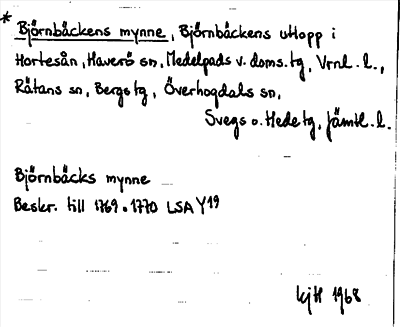 * Björnbäckens mynne, Björnbäckens utlopp i
Hortesån, Haverö sn, Medelpads v. doms. tg, Vrnl. l.,
Rätans sn, Bergs tg, Överhogdals sn,
Svegs o. Hede tg, Jämtl. l.
Björnbäcks mynne
Beskr. till 1769 o 1770 LSA Y19
KjH 1968